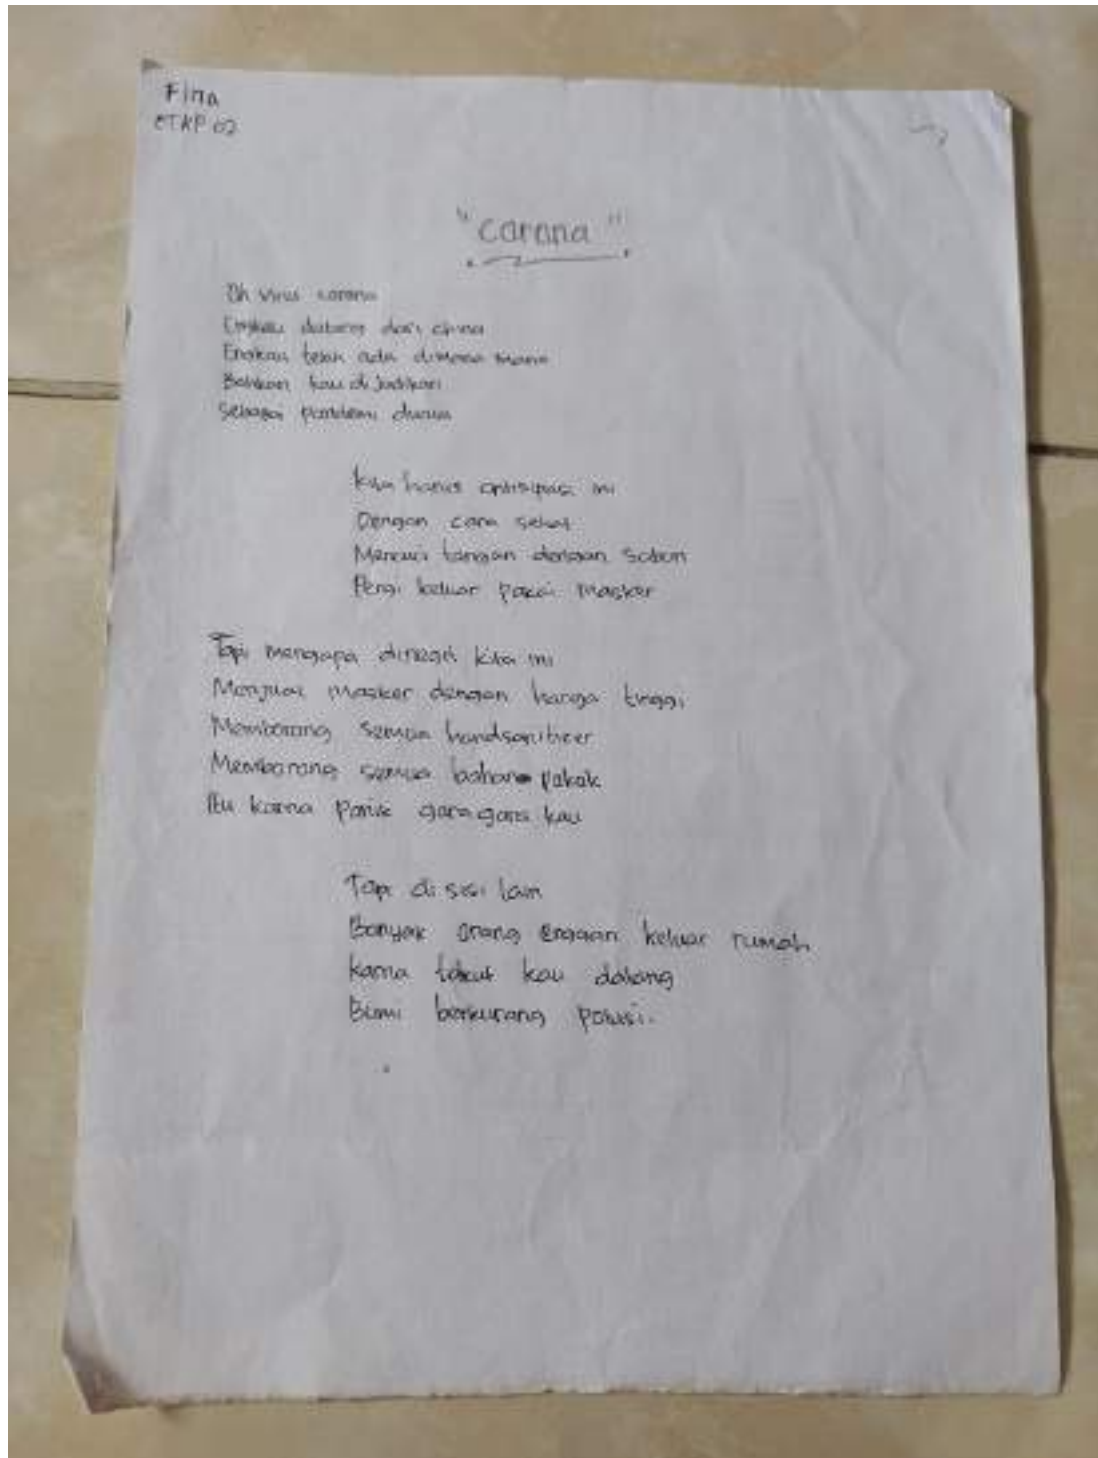 Fina
"Corona"
Oh Virus corona
Engkau datang dari china
Engkau telah ada dimana mana
Bahkan kau di Jadikan
Sebagai pandemi dunia
Kita harus antisipasi ini
Dengan cara sehat
Mencuci tangan dengan sabun
Pergi keluar pakai masker
Tapi mengapa dinegri kita ini
Menjual masker dengan harga tinggi
Memborong semua handsanitizer
Memborong semua bahan pokok
Itu karna panik gara gara kau
Tapi di sisi lain
Banyak orang enggan keluar rumah
Karna takut kau datang
Bumi berkurang polusi.